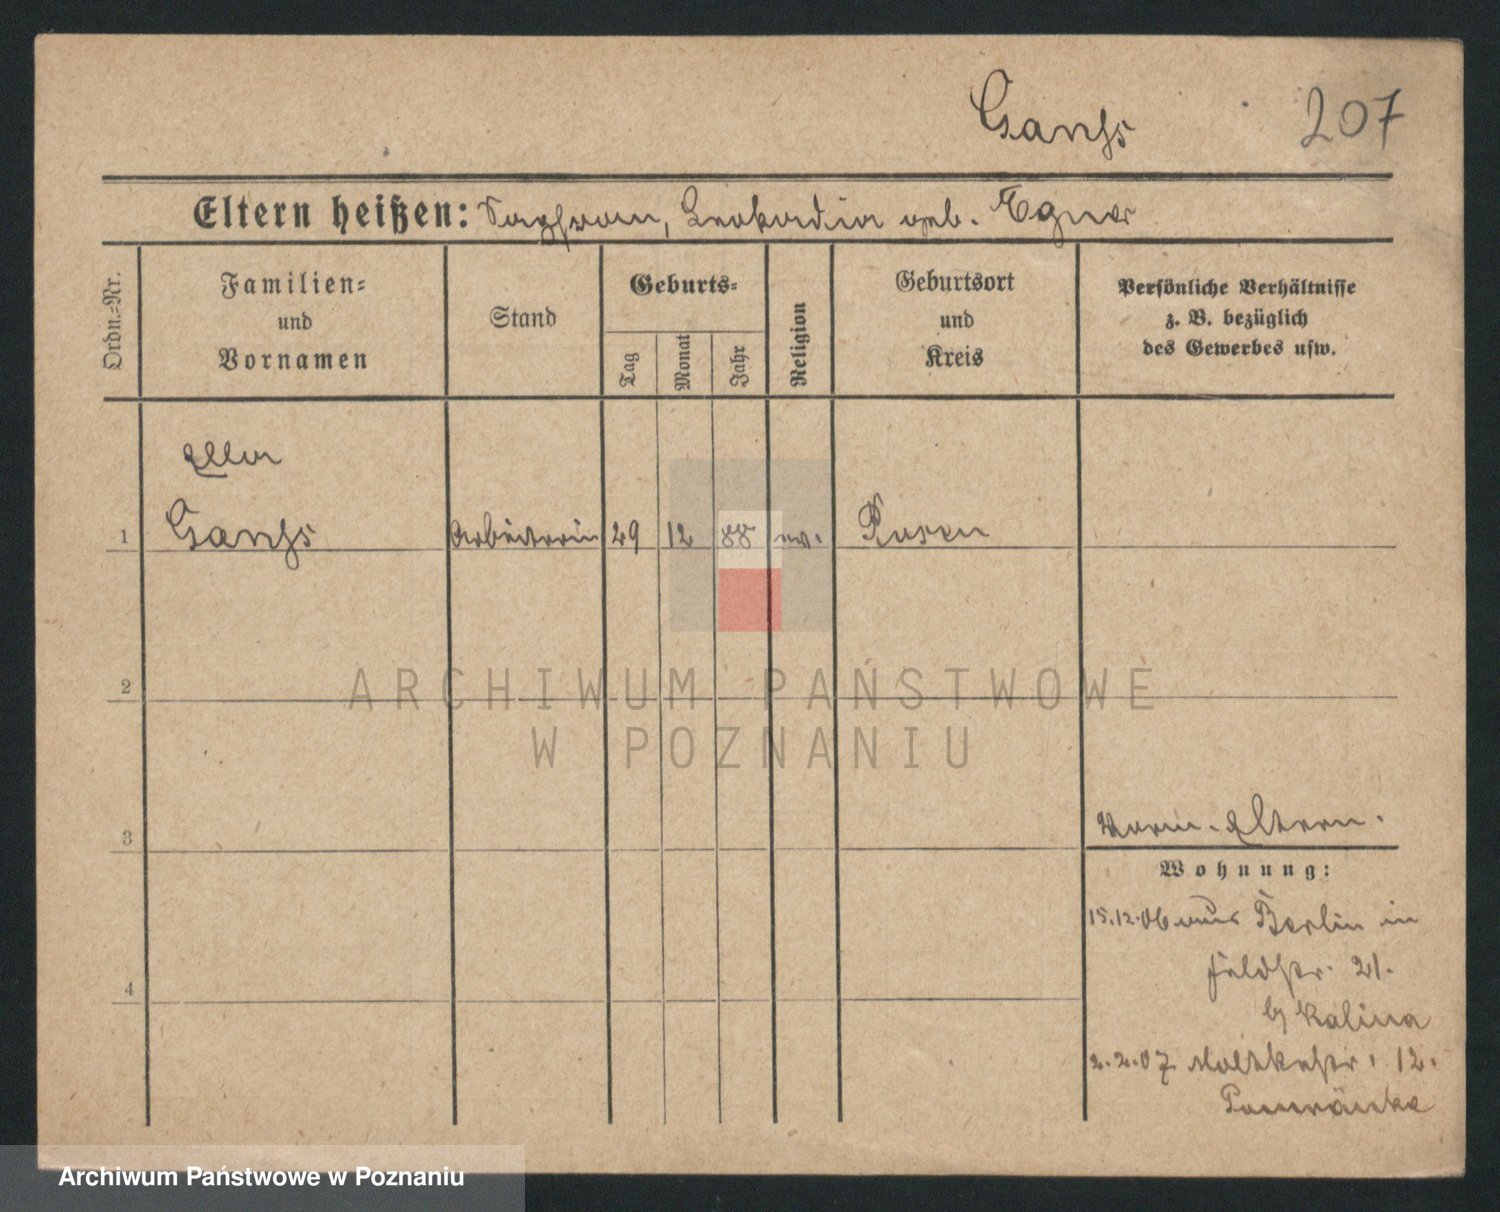 Ganss 207
Eltern heißen: Leokadia geb. Egner
Ordn.-Nr.
Familien-
und
Vornamen
Stand
Geburts-
Tag
Monat
Jahr
Religion
Geburtsort
und
Kreis
Persönliche Verhältnisse
z. B. bezüglich
des Gewerbes usw.
Ella
1 Ganss Arbeiterin 29 12 88 ev. Posen
2
ARCHIWUM PAŃSTWOWE
W POZNANIU
3
Vorm. Eltern.
Wohnung:
15.12.06 aus Berlin in
Feldstr. 21.
4
b/ Kalina
2.2.07 Moltkestr. 12.
Archiwum Państwowe w Poznaniu